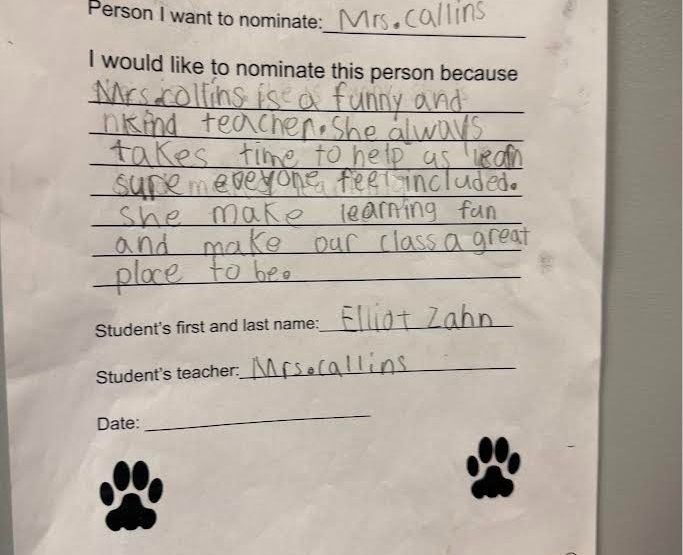 Person I want to nominate: Mrs. Callins
I would like to nominate this person because
Mrs. collins is a funny and
kind teacher. She always
takes time to help us lean
sure eveyone feel included.
she make learning fun
and make our class a great
place to be.
Student's first and last name: Elliot Zahn
Student's teacher: Mrs. callins
Date: